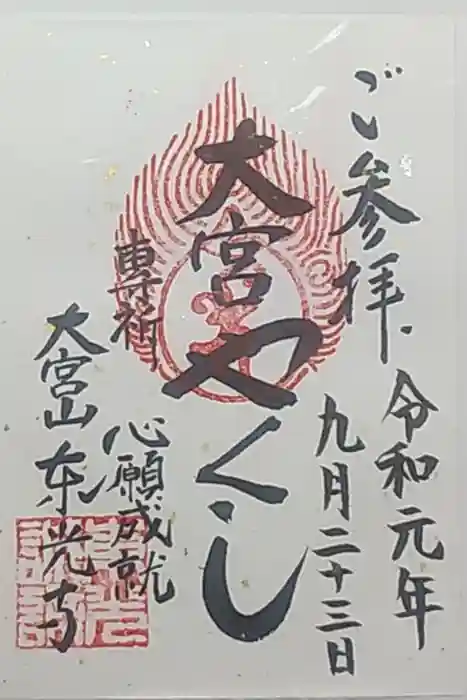 ご参拝
令和元年
九月二十三日
大宮やくし
専祈
心願成就
大宮山東光寺